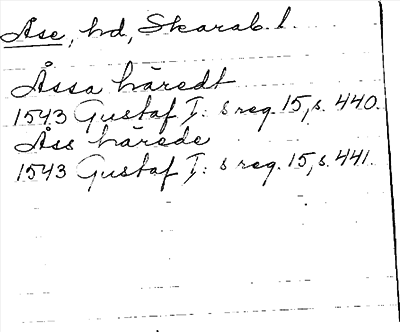 Åse, hd, Skarab. l.
Åssa häredt
1543 Gustaf I: s reg. 15, s. 440.
Åss härede
1543 Gustaf I: s reg. 15, s. 441.